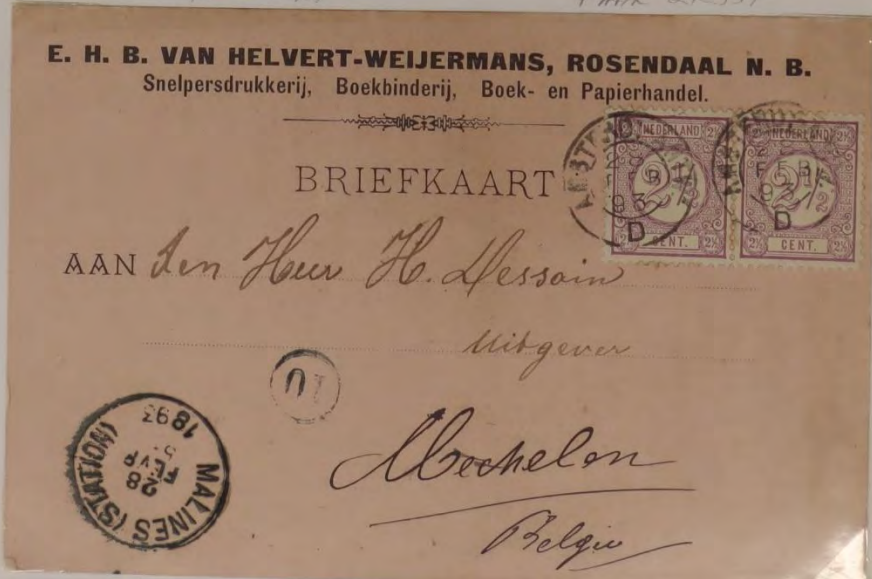 E. H. B. VAN HELVERT-WEIJERMANS, ROSENDAAL N. B.
Snelpersdrukkerij, Boekbinderij, Boek- en Papierhandel.
BRIEFKAART
NEDERLAND
2½
CENT.
NEDERLAND
2½
CENT.
FEB
93
D
FEB
93
D
AAN Den Heer H. Dessain
Uitgever
Mechelen
Belgie
MALINES (STATION)
28
FEVR
1893